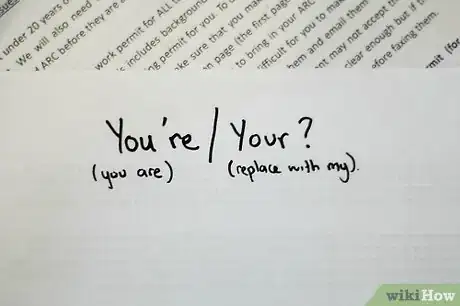 under 20 years o
We will also need
ARC before they are a
work permit for ALL t
includes background
ng permit for you. To
ake sure that you ma
on page (the first page
to bring in your ARC
ifficult for you to make
them and email them
nt may not accept th
clear enough but if
efore faxing them.
rmit (fo
You're / Your?
(you are) (replace with my).
wikiHow